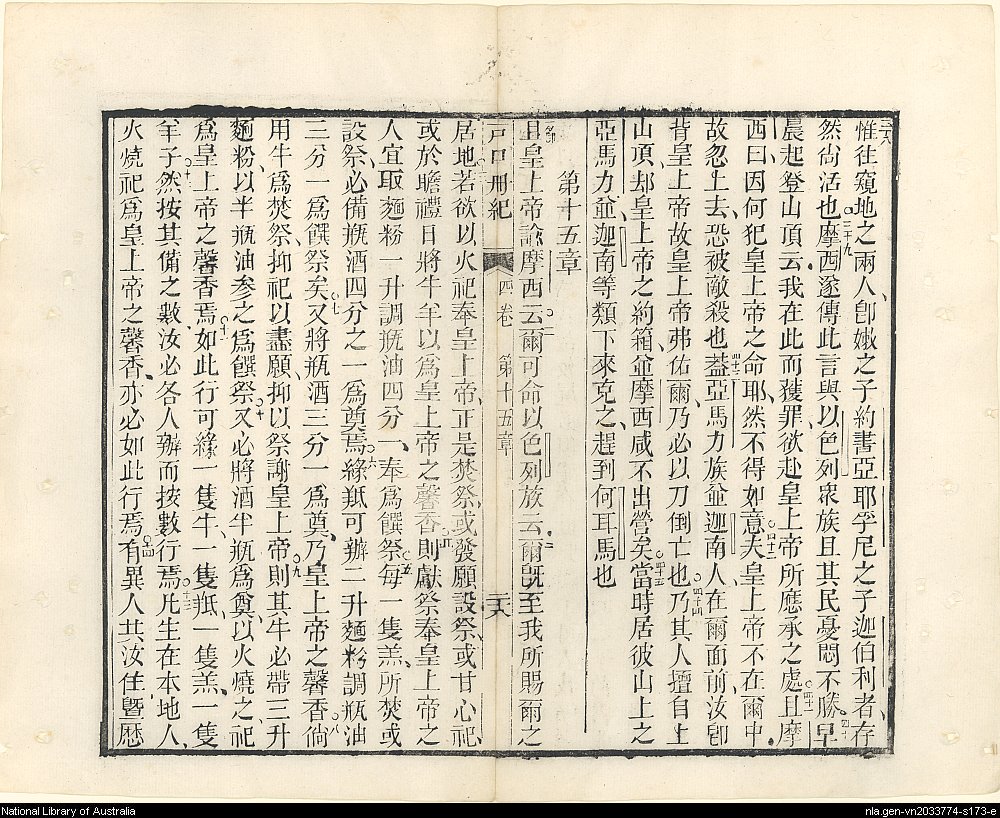 惟往窺地之兩人卽嫩之子約書亞耶孚尼之子迦伯利者存
然尙活也三十九摩西遂傳此言與以色列衆族且其民憂悶不勝四十早
晨起登山頂云我在此而獲罪欲赴皇上帝所應承之處四十一且摩
西曰因何犯皇上帝之命耶然不得如意四十二夫皇上帝不在爾中
故忽上去恐被敵殺也四十三蓋亞馬力族並迦南人在爾面前汝卽
背皇上帝故皇上帝弗佑爾乃必以刀倒亡也四十四乃其人擅自上
山頂却皇上帝之約箱並摩西咸不出營矣四十五當時居彼山上之
亞馬力並迦南等類下來克之趕到何耳馬也
第十五章
且皇上帝諭摩西云二爾可命以色列族云爾旣至我所賜爾之
戶口冊紀 四卷 第十五章 二十八
居地三若欲以火祀奉皇上帝正是焚祭或發願設祭或甘心祀
或於瞻禮日將牛羊以爲皇上帝之馨香四則獻祭奉皇上帝之
人宜取麵粉一升調瓶油四分一奉爲饌祭五每一隻羔所焚或
設祭必備瓶酒四分之一爲奠焉六緣羝可辦二升麵粉調瓶油
三分一爲饌祭矣七又將瓶酒三分一爲奠乃皇上帝之馨香八倘
用牛爲焚祭抑祀以盡願抑以祭謝皇上帝九則其牛必帶三升
麵粉以半瓶油參之爲饌祭十又必將酒半瓶爲奠以火燒之祀
爲皇上帝之馨香焉十一如此行可緣一隻牛一隻羝一隻羔一隻
羊子十二然按其備之數汝必各人辦而按數行焉十三凡生在本地人
火燒祀爲皇上帝之馨香亦必如此行焉十四有異人共汝住曁歷